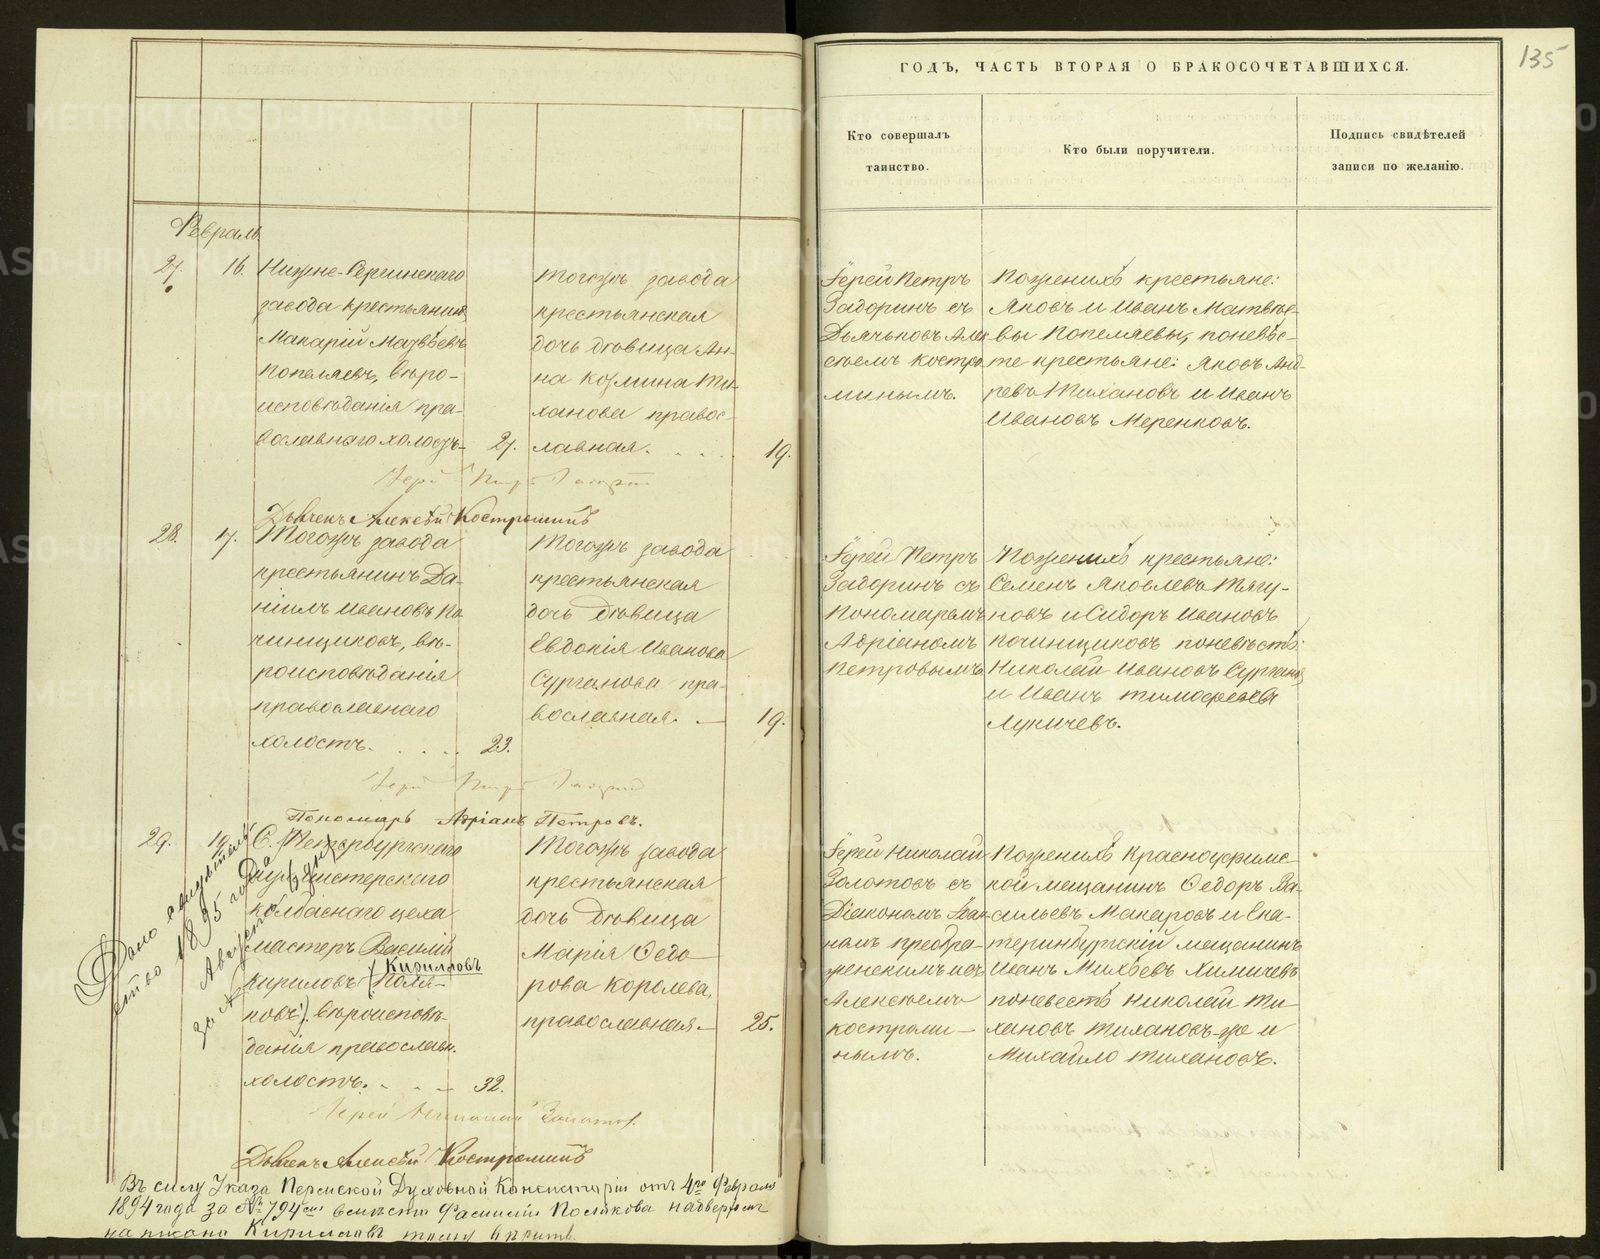 135
ГОДЪ, ЧАСТЬ ВТОРАЯ О БРАКОСОЧЕТАВШИХСЯ.
Кто совершалъ
таинство.
Кто были поручители.
Подпись свидѣтелей
записи по желанію.
Февраль
27. 16.
Нижне-Сергинскаго
завода крестьянинъ
Макарій Матвѣевъ
Попеляевъ, вѣро-
исповѣданія пра-
вославнаго холостъ 27.
Тогожъ завода
крестьянская
дочь дѣвица Ан-
на Козмина Ти-
ханова правос-
лавная. 19.
Іерей Петръ
Задоринъ съ
Дьячковъ Алек
сѣемъ Костро
минымъ.
По женихѣ крестьяне:
Яковъ и Иванъ Матвѣе-
вы Попеляевы, по невѣс-
те крестьяне: Яковъ Анд-
ревъ Тихановъ и Иванъ
Ивановъ Меренковъ.
Іерей Петръ Задоринъ
Дьячекъ Алексѣй Костроминъ
28. 17.
Тогожъ завода
крестьянинъ Да-
ніилъ Ивановъ По
чинщиковъ, вѣ-
роисповѣданія
православнаго
холостъ. 23.
Тогожъ завода
крестьянская
дочь дѣвица
Евдокія Иванова
Сурганова пра-
вославная. 19.
Іерей Петръ
Задоринъ съ
Пономаремъ
Адріаномъ
Петровымъ
По женихѣ крестьяне:
Семенъ Яковлевъ Тягу-
новъ и Сидоръ Ивановъ
Починщиковъ по невѣстѣ:
Николай Ивановъ Сургановъ
и Иванъ Тимофеевъ
Лукичевъ.
Іерей Петръ Задоринъ
Пономарь Адріанъ Петровъ.
29. 19.
С. Петербургскаго
колбаснаго цеха
мастеръ Василій
Кириловъ (Поля-
Кирилловъ
ковъ). вѣроисповѣ-
данія православн.
холостъ. 32.
Тогожъ завода
крестьянская
дочь дѣвица
Марія Ѳедо
рова Королева,
православная 25.
Іерей Николай
Золотовъ съ
Діакономъ Іоан
номъ Преобра-
женскимъ и дч
Алексѣемъ
Костроми-
нымъ.
По женихѣ Красноуфимс
кой мещанинъ Ѳедоръ Ва-
сильевъ Макаровъ и Ека-
теринбургскій мещанинъ
Иванъ Михѣевъ Химичевъ
по невестѣ Николай Ти-
хановъ Тихановъ-же и
Михайло Тихановъ.
Дано
1895 года
Августа
за №
Іерей Николай Золотовъ.
Дьячекъ Алексѣй Костроминъ
Въ силу Указа Пермской Духовной Консисторіи отъ 4го Февраля
1894 года за № 794 вмѣсто фамиліи Полякова надверхомъ
написано Кирилловъ тому вѣрить.